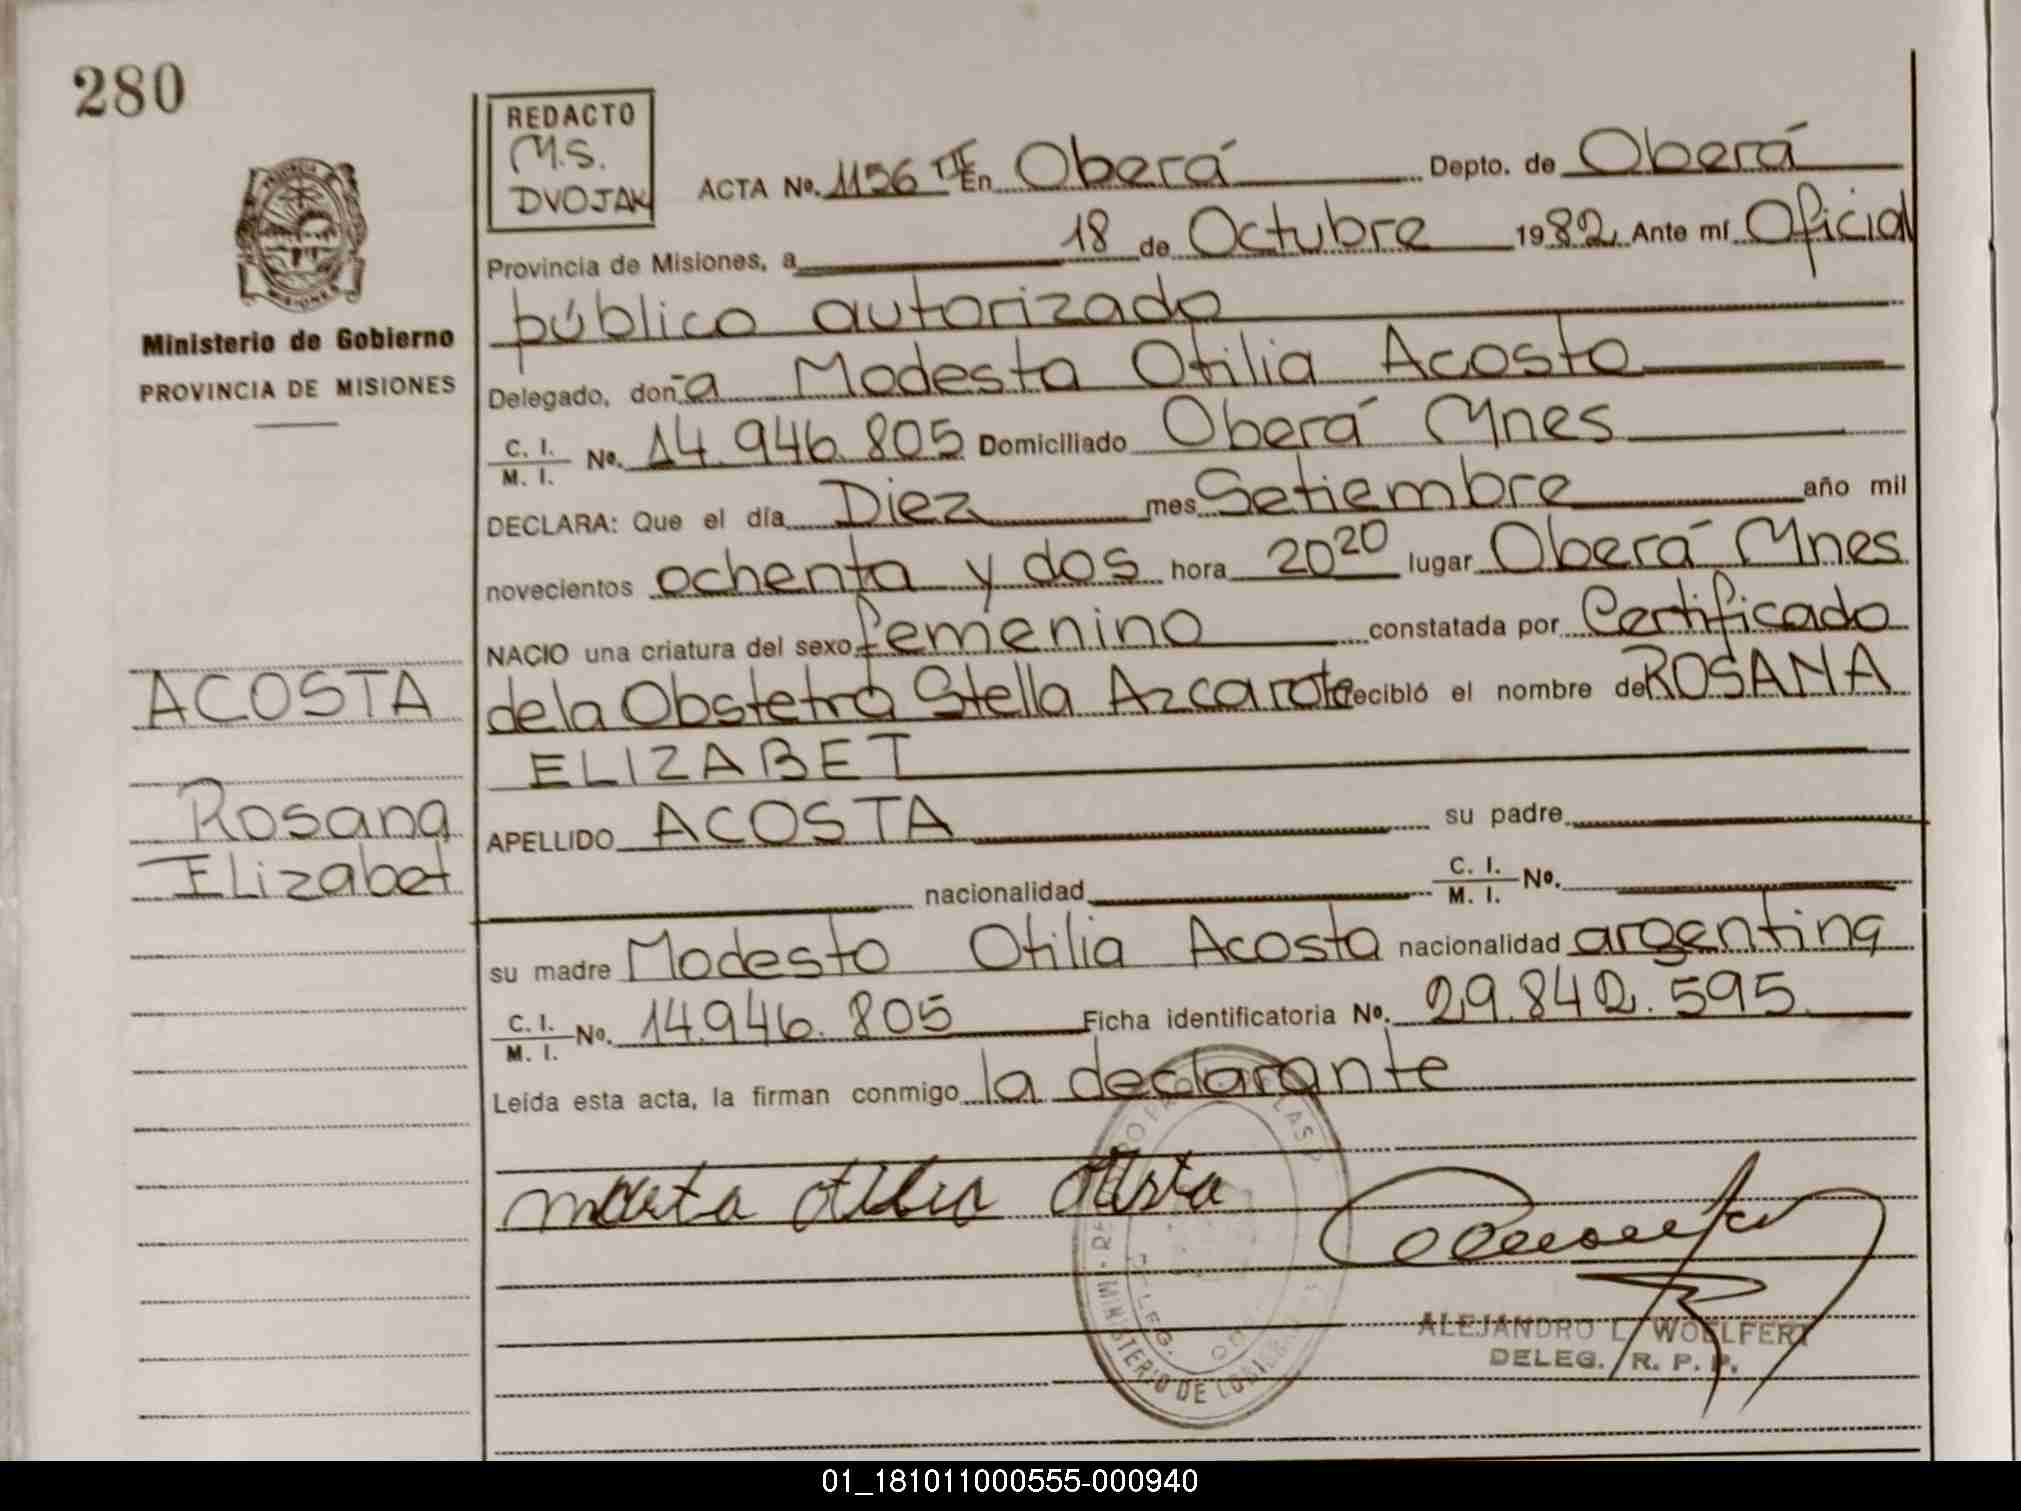 280
REDACTO
M.S.
DVOJAK
ACTA No. 1156 TII En Oberá Depto. de Oberá
Provincia de Misiones, a 18 de Octubre 1982 Ante mí Oficial
público autorizado
Delegado, doña Modesta Otilia Acosta
C. I. / M. I. No. 14.946.805 Domiciliado Oberá Mnes
DECLARA: Que el día Diez mes Setiembre año mil
novecientos ochenta y dos hora 20 20 lugar Oberá Mnes
NACIO una criatura del sexo femenino constatada por Certificado
de la Obstetra Stella Azcarate recibió el nombre de ROSANA
ELIZABET
APELLIDO ACOSTA su padre
nacionalidad C. I. / M. I. No.
su madre Modesta Otilia Acosta nacionalidad argentina
C. I. / M. I. No. 14.946.805 Ficha identificatoria No. 29.842.595
Leída esta acta, la firman conmigo la declarante
ALEJANDRO L. WOELFERT
DELEG. R. P. P.
MINISTERIO DE GOBIERNO
DELEG.
PROVINCIA
MISIONES
Ministerio de Gobierno
PROVINCIA DE MISIONES
ACOSTA
Rosana
Elizabet
01_181011000555-000940